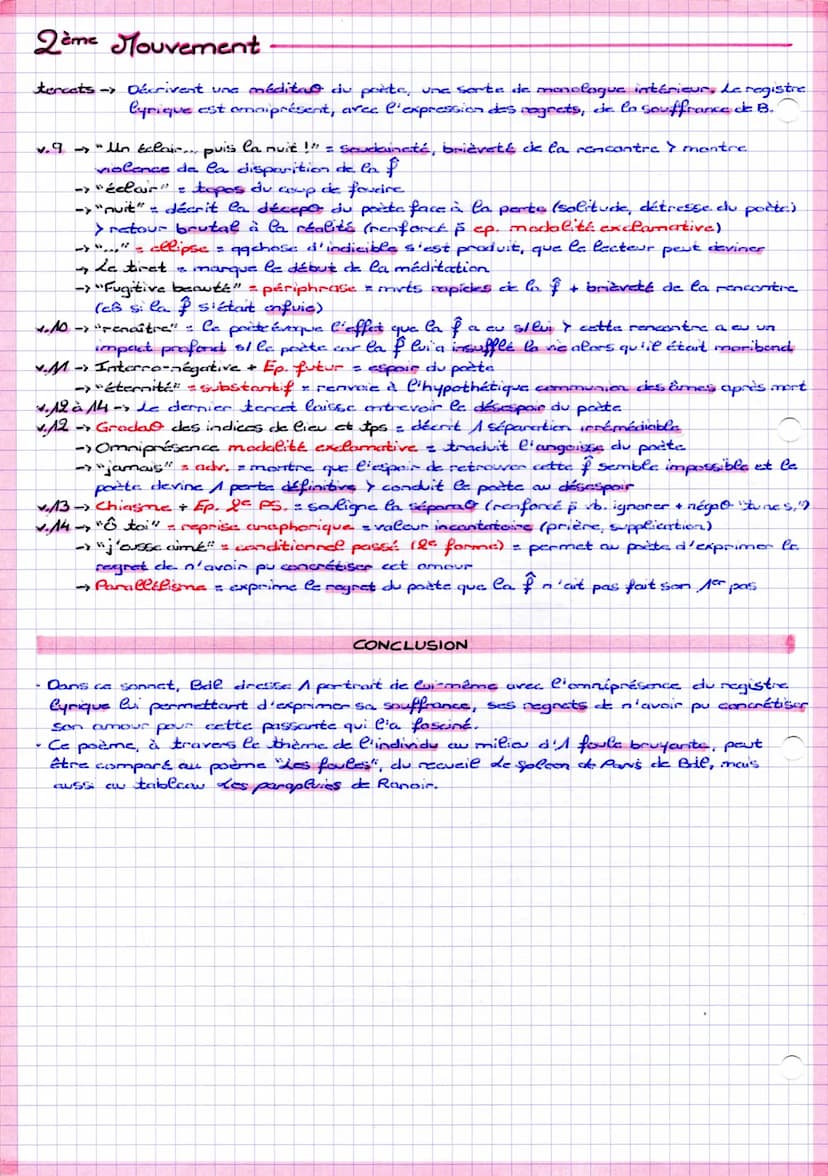 2ème Mouvement
tercets -> Décrivent une médita° du poète, une sorte de monologue intérieur. Le registre
lyrique est omniprésent, avec l'expression des regrets, de la souffrance de B.
v.9 -> "Un éclair... puis la nuit !" = soudaineté, brièveté de la rencontre > montre
violence de la disparition de la f
-> "éclair" = topos du coup de foudre
-> "nuit" = décrit la décep° du poète face à la perte (solitude, détresse du poète)
> retour brutal à la réalité (renforcé p̄ ep. modalité exclamative)
-> "..." = ellipse = qqchose d'indicible s'est produit, que le lecteur peut deviner
-> Le tiret = marque le début de la méditation
-> "Fugitive beauté" = périphrase = mvts rapides de la f + brièveté de la rencontre
(cB si la f s'était enfuie)
v.10 -> "renaître" = le poète évoque l'effet que la f a eu s/lui > cette rencontre a eu un
impact profond s/ le poète car la f lui a insufflé la vie alors qu'il était moribond
v.11 -> Interro-négative + Ep. futur = espoir du poète
-> "éternité" = substantif = renvoie à l'hypothétique communion des âmes après mort
v.12 à 14 -> Le dernier tercet laisse entrevoir le désespoir du poète
v.12 -> Grada° des indices de lieu et tps = décrit 1 séparation irrémédiable
-> Omniprésence modalité exclamative = traduit l'angoisse du poète
-> "jamais" = adv. = montre que l'espoir de retrouver cette f semble impossible et le
poète devine 1 perte définitive > conduit le poète au désespoir
v.13 -> Chiasme + Ep. 2e PS. = souligne la sépara° (renforcé p̄ vb. ignorer + néga° "tu ne s.")
v.14 -> "Ô toi" = reprise anaphorique = valeur incantatoire (prière, supplication)
-> "j'eusse aimé" = conditionnel passé (2e forme) = permet au poète d'exprimer le
regret de n'avoir pu concrétiser cet amour
-> Parallélisme = exprime le regret du poète que la f n'ait pas fait son 1er pas
CONCLUSION
· Dans ce sonnet, Bdl dresse 1 portrait de lui-même avec l'omniprésence du registre
lyrique lui permettant d'exprimer sa souffrance, ses regrets de n'avoir pu concrétiser
son amour pour cette passante qui l'a fasciné.
· Ce poème, à travers le thème de l'individu au milieu d'1 foule bruyante, peut
être comparé au poème "Les foules", du recueil Le Spleen de Paris de Bdl, mais
aussi au tableau Les parapluies de Renoir.